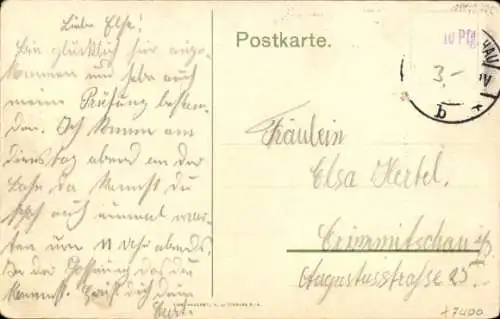 Liebe Else!
Bin glücklich hier ange-
kommen und habe auch
meine Prüfung bestan-
den. Ich komme am
Dienstag abend an der
Bahn da kannst du
auch einmal war-
ten um 11 Uhr abends.
In der Hoffnung das du
kommst. Grüßt dich dein
Kurt.
Postkarte.
10 Pfg
HAU
3,-
IV
b *
Fräulein
Elsa Hertel.
Crimmitschau i/S.
Augustusstraße 25.
x7400